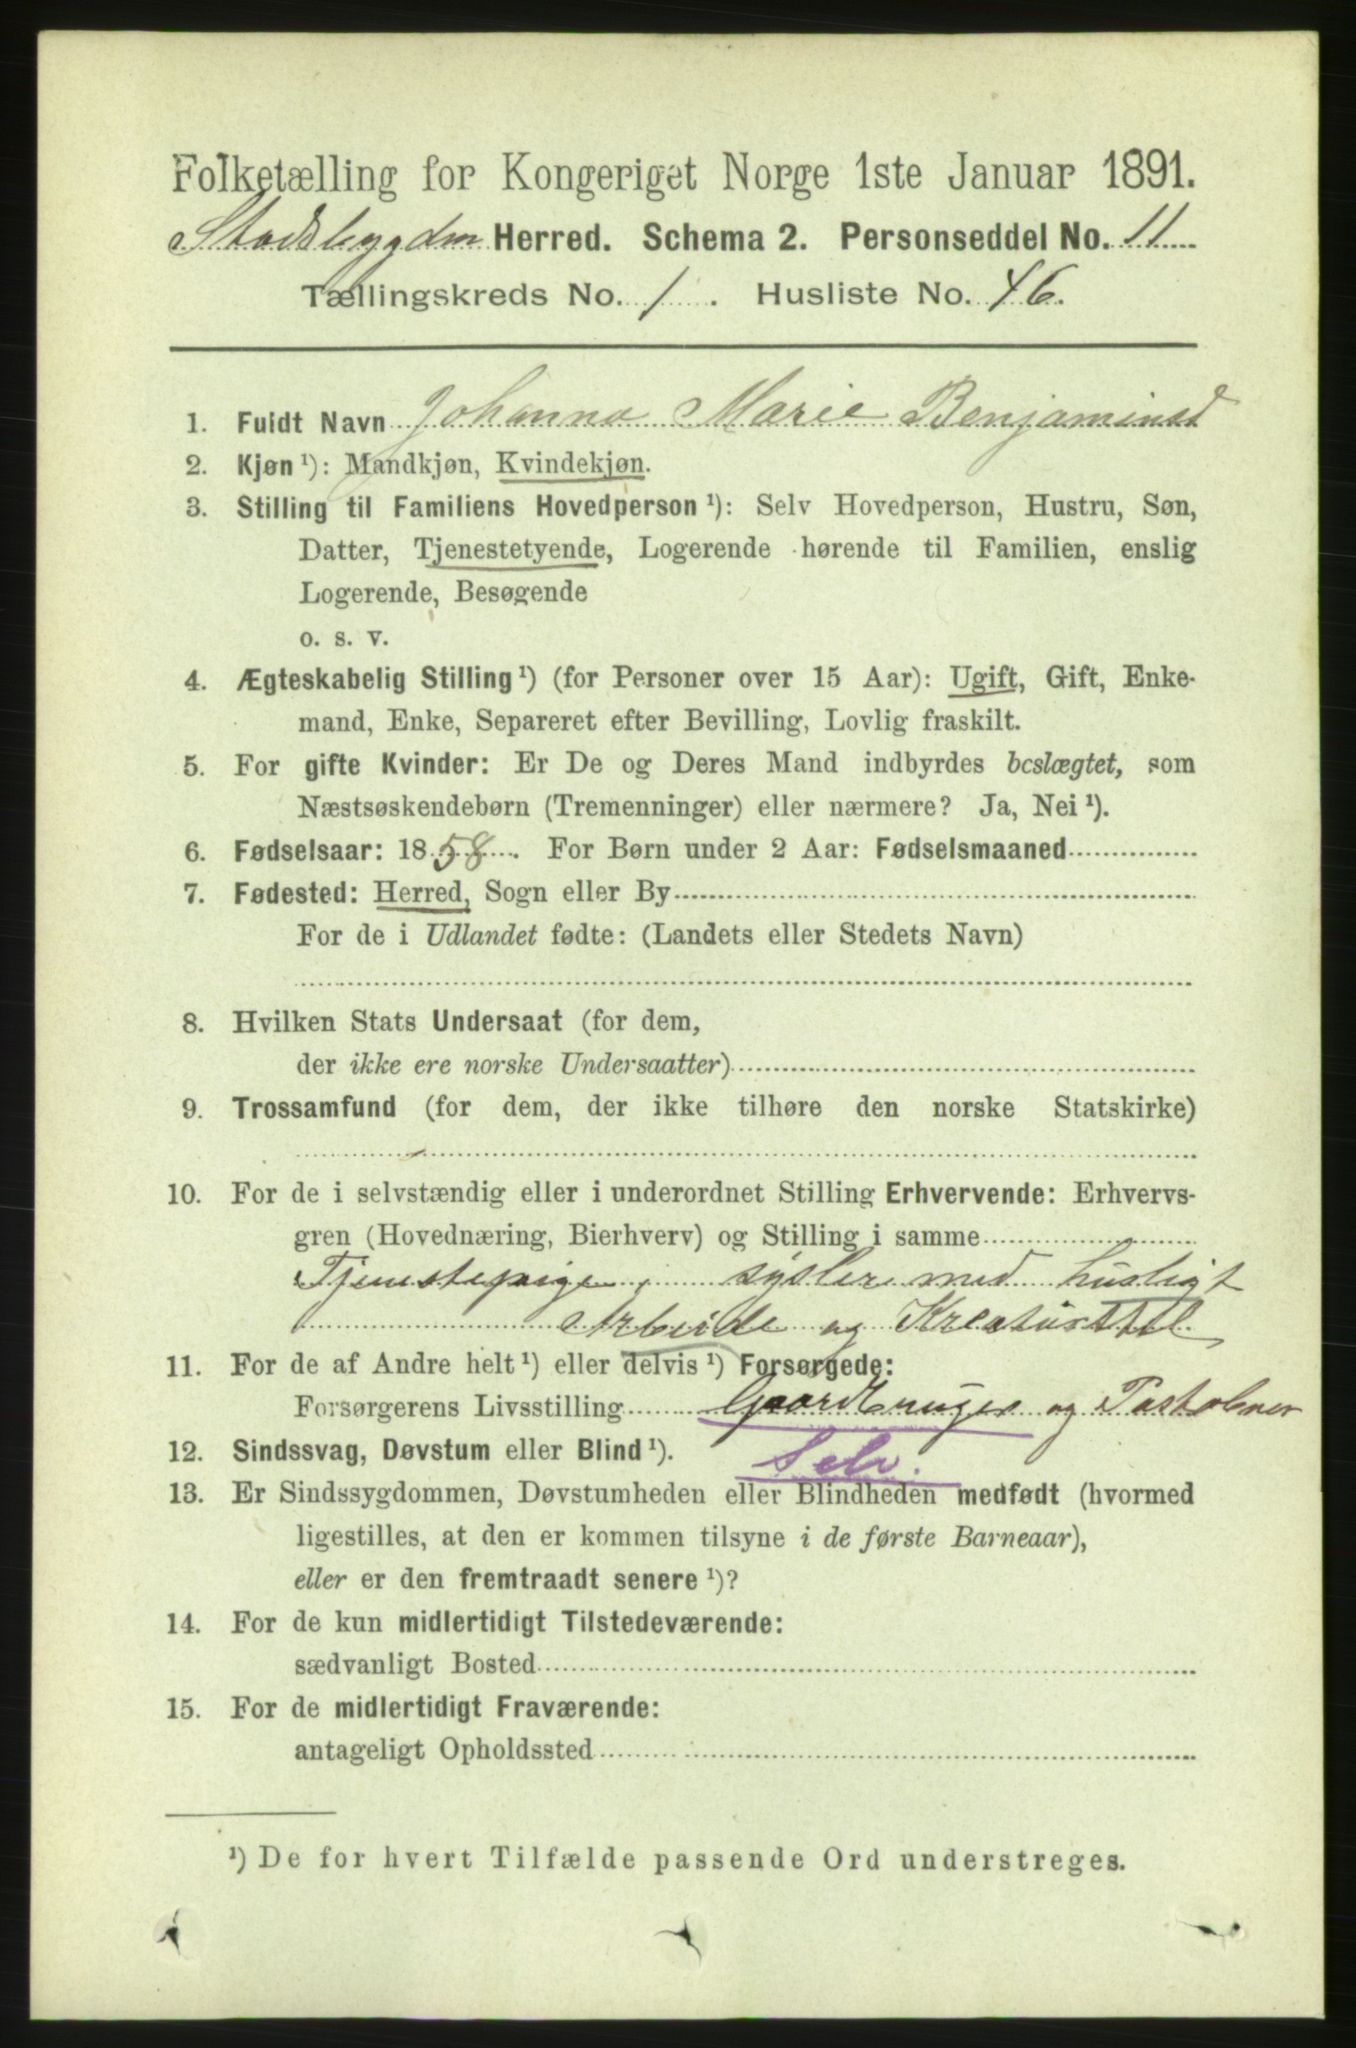 Folketælling for Kongeriget Norge 1ste Januar 1891.
Stadsbygden Herred. Schema 2. Personseddel No. 11
Tællingskreds No. 1. Husliste No. 46.
1. Fuldt Navn Johanna Marie Benjaminsd
2. Kjøn ¹): Mandkjøn, Kvindekjøn.
3. Stilling til Familiens Hovedperson ¹): Selv Hovedperson, Hustru, Søn,
Datter, Tjenestetyende, Logerende hørende til Familien, enslig
Logerende, Besøgende
o. s. v.
4. Ægteskabelig Stilling ¹) (for Personer over 15 Aar): Ugift, Gift, Enke-
mand, Enke, Separeret efter Bevilling, Lovlig fraskilt.
5. For gifte Kvinder: Er De og Deres Mand indbyrdes beslægtet, som
Næstsøskendebørn (Tremenninger) eller nærmere? Ja, Nei ¹).
6. Fødselsaar: 1858. For Børn under 2 Aar: Fødselsmaaned
7. Fødested: Herred, Sogn eller By
For de i Udlandet fødte: (Landets eller Stedets Navn)
8. Hvilken Stats Undersaat (for dem,
der ikke ere norske Undersaatter)
9. Trossamfund (for dem, der ikke tilhøre den norske Statskirke)
10. For de i selvstændig eller i underordnet Stilling Erhvervende: Erhvervs-
gren (Hovednæring, Bierhverv) og Stilling i samme
Tjenestepige, sysler med husligt
Arbeide og Kreaturstel
11. For de af Andre helt ¹) eller delvis ¹) Forsørgede:
Forsørgerens Livsstilling Gaardbruger og Postaabner
12. Sindssvag, Døvstum eller Blind ¹). Selv.
13. Er Sindssygdommen, Døvstumheden eller Blindheden medfødt (hvormed
ligestilles, at den er kommen tilsyne i de første Barneaar),
eller er den fremtraadt senere ¹)?
14. For de kun midlertidigt Tilstedeværende:
sædvanligt Bosted
15. For de midlertidigt Fraværende:
antageligt Opholdssted
¹) De for hvert Tilfælde passende Ord understreges.